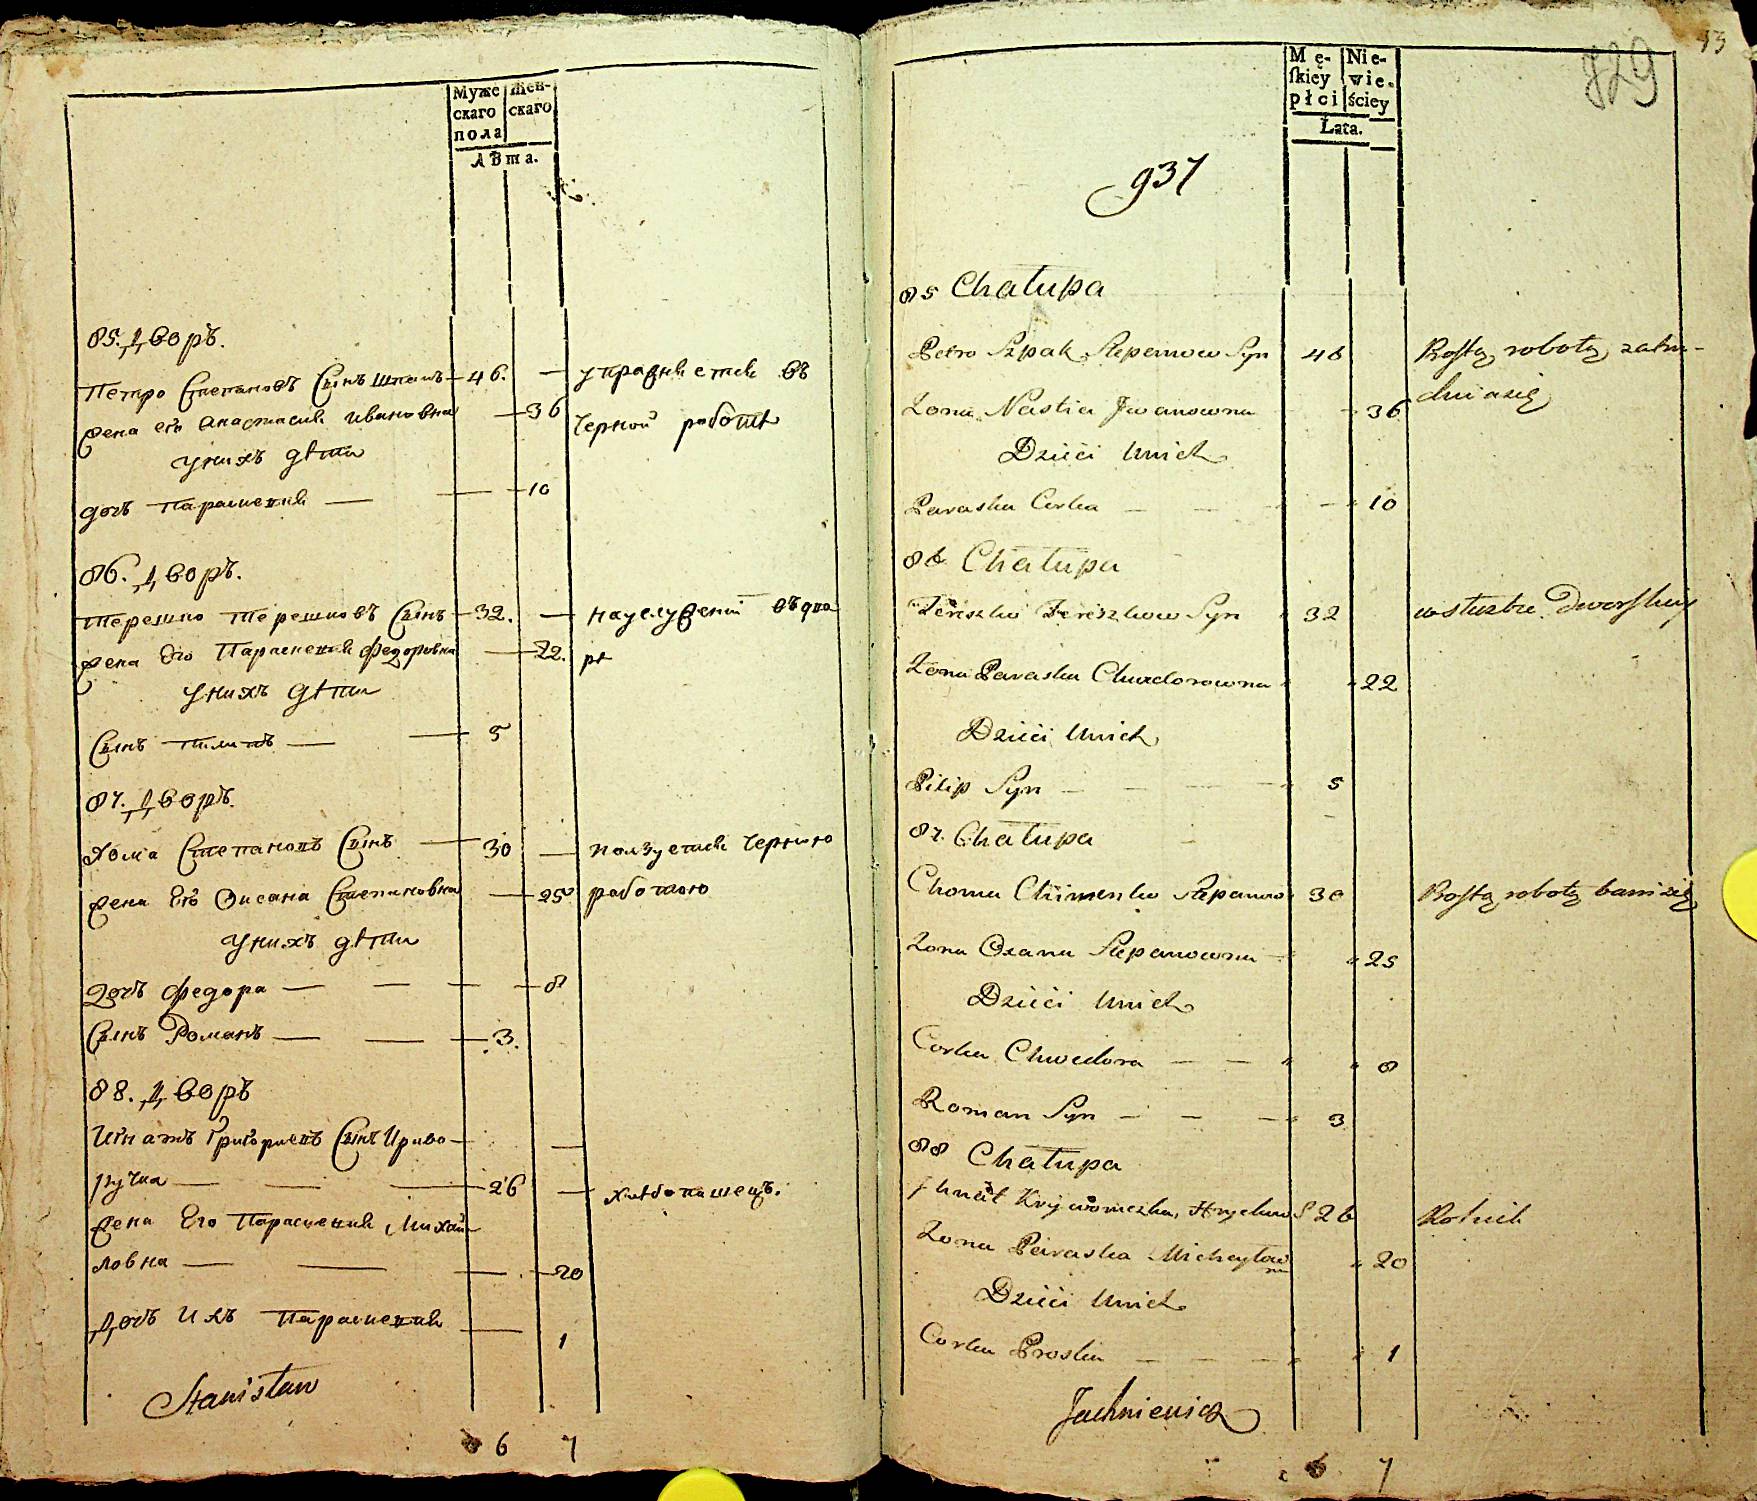 Муже
скаго
пола
Жен-
скаго
лѣта.
85. Дворъ.
Петро Степановъ Сынъ Шпакъ 46. —
упражняется въ
Жена его Анастасия Ивановна — 36
черной работѣ
у нихъ дѣти
дочь Параскевия — — 10
86. Дворъ.
Терешко Терешковъ Сынъ 32. —
на услужении въ дво
Жена Его Параскевия Федоровна — 22.
рѣ
у нихъ дѣти
Сынъ Пилипъ — — 5
87. Дворъ.
Хома Степановъ Сынъ — 30 —
пользуется черною
Жена Его Оксана Степановна — 25
работою
у нихъ дѣти
Дочь Федора — — — 8
Сынъ Романъ — — 3.
88. Дворъ
Игнатъ Григориевъ Сынъ Криво-
ручка — — — 26 —
хлѣбопашецъ.
Жена Его Параскевия Михай-
ловна — — — 20
Дочь Ихъ Параскевия — 1
Stanisław
6 7
Mę-
skiey
płci
Nie-
wie-
ściey
Łata.
93
829
937
85 Chałupa
Petro Szpak Stepanow Syn 46
Prostą robotą zatru-
dnia się
Zona Nastia Jwanowna 36
Dzieci Unich
Paraska Corka — — — 10
86 Chałupa
Tereszko Tereszkow Syn 32
w służbie Dworskiey
Zona Paraska Chwedorowna 22
Dzieci Unich
Pilip Syn — — — 5
87. Chałupa
Choma Chimenko Stepanow 30
Prostą robotą bawi się
Zona Oxana Stepanowna — 25
Dzieci Unich
Corka Chwedora — — 8
Roman Syn — — — 3
88 Chałupa
Jhnat Kryworuczka, Hryckow S 26
Rolnik
Zona Paraska Michayłow
na 20
Dzieci Unich
Corka Proska — — — 1
Jachniewicz
6 7